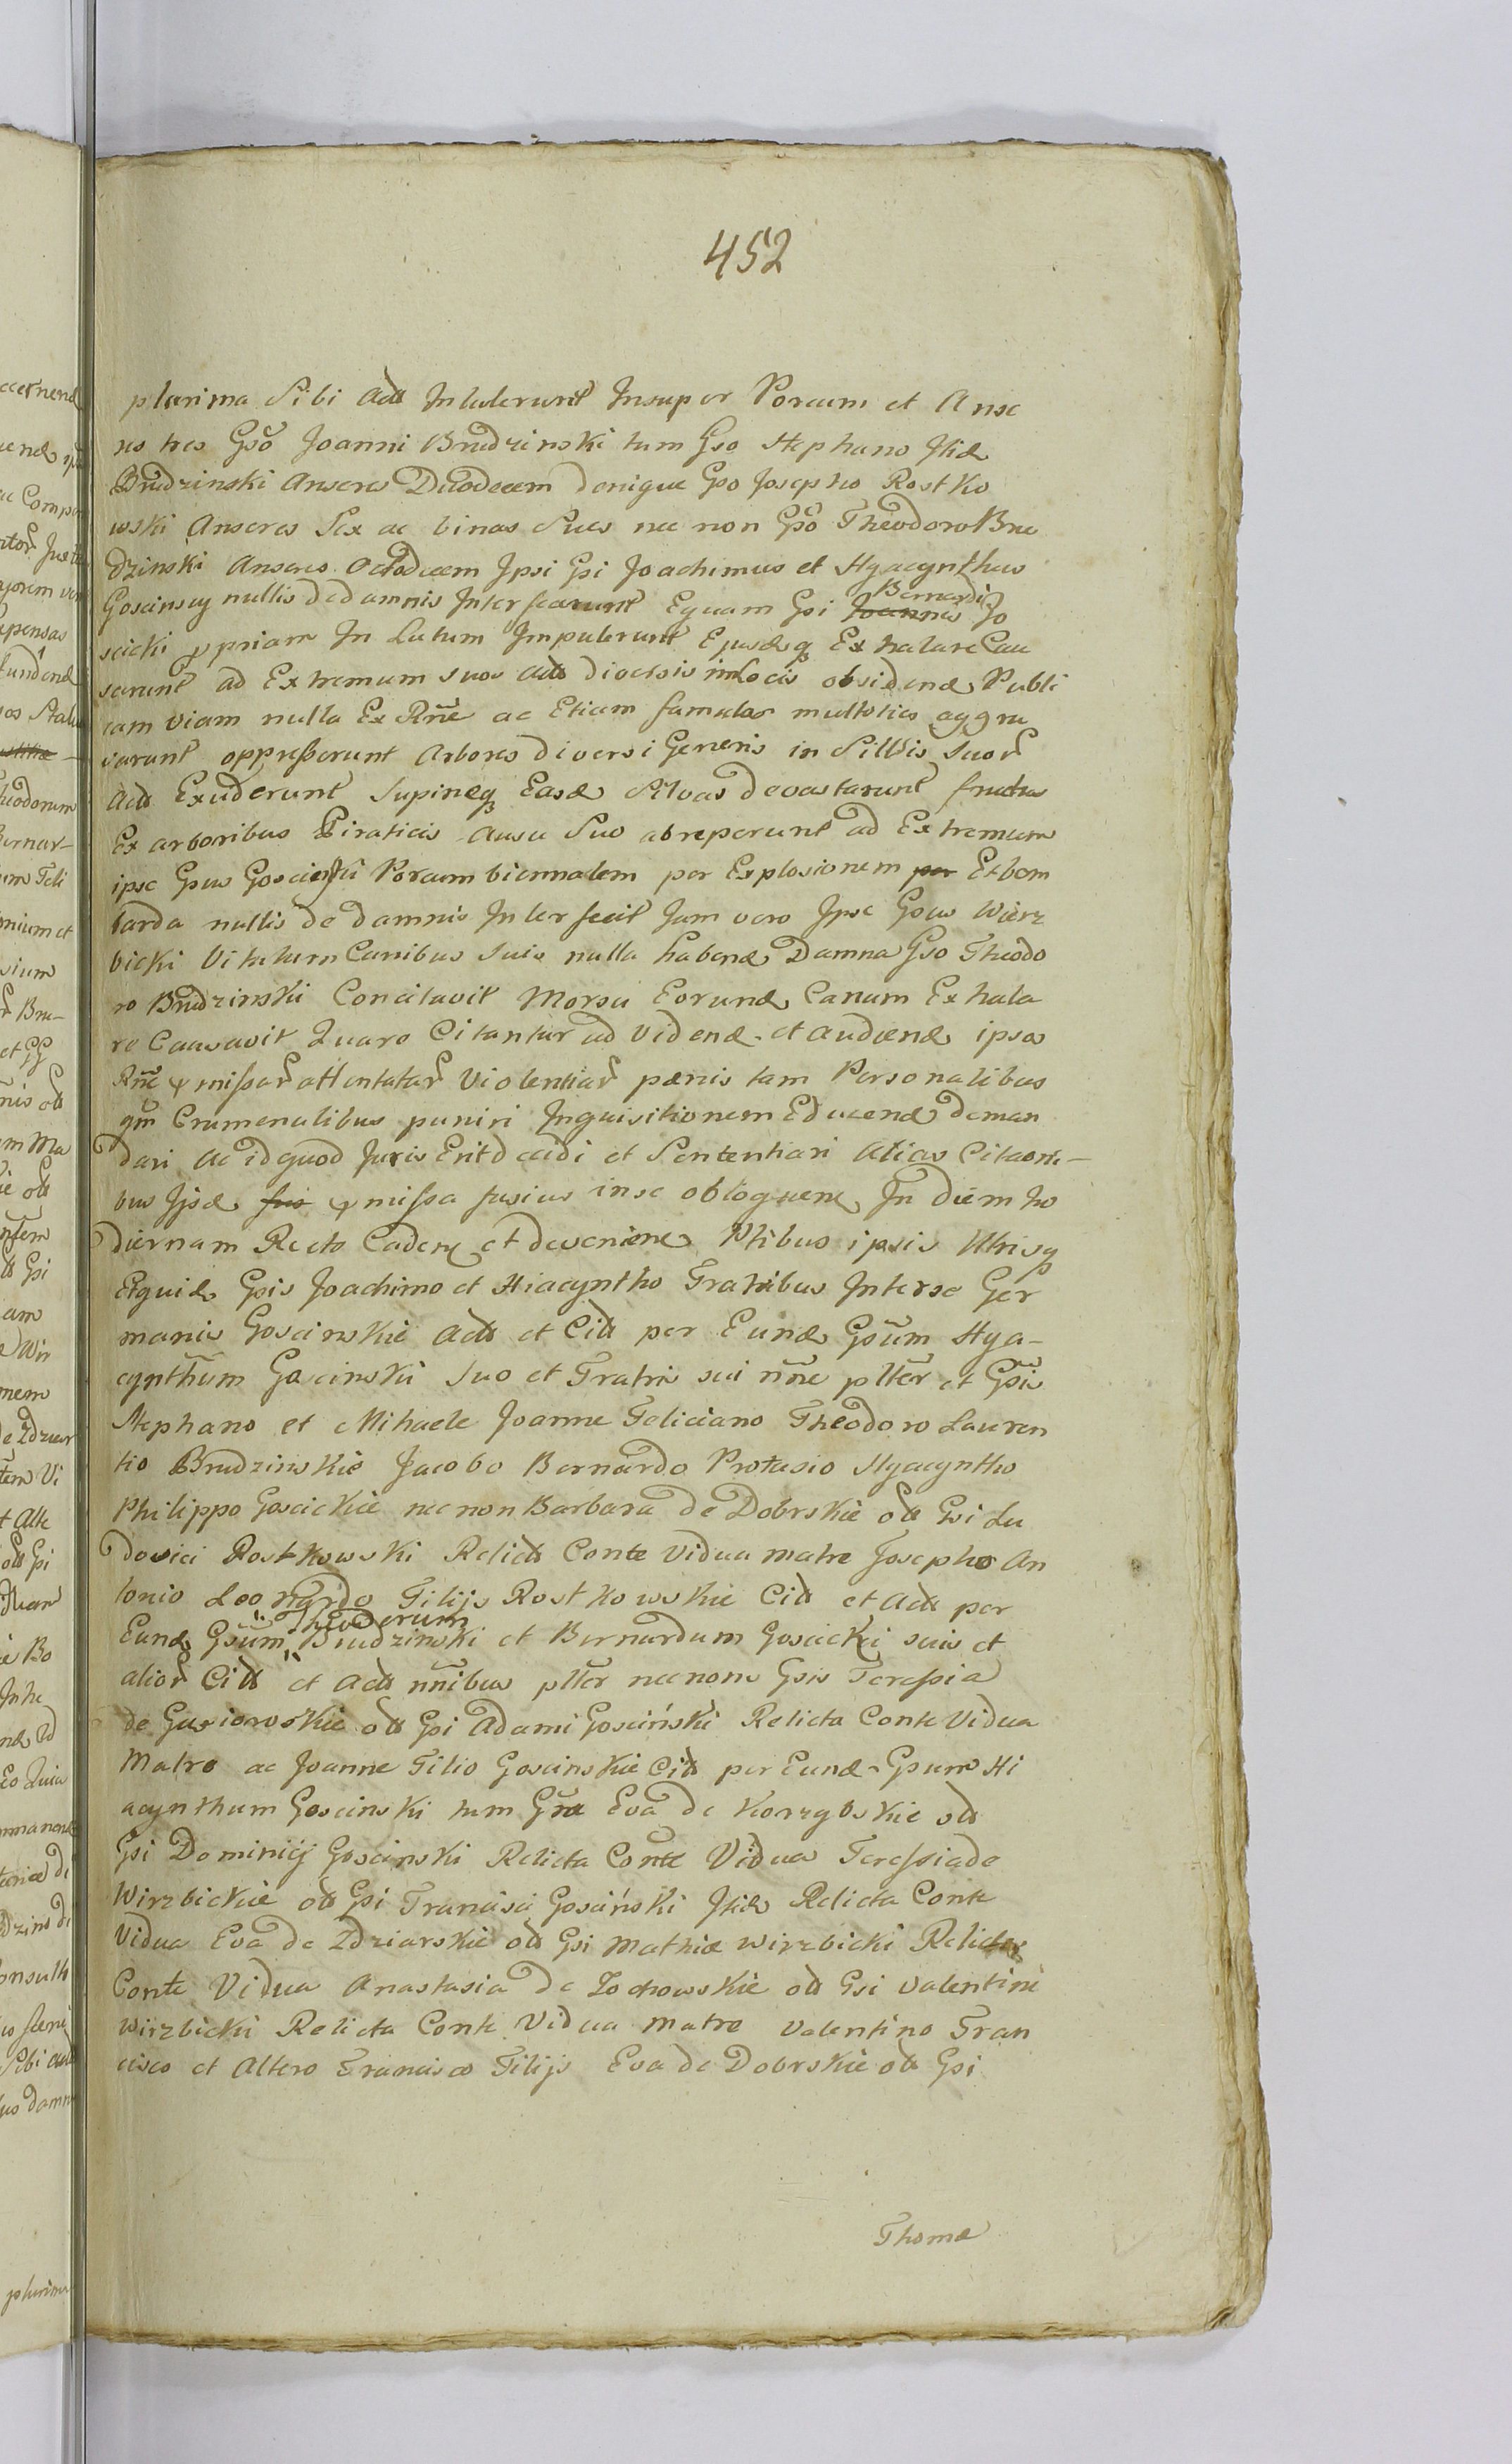 452
plurima Sibi Actt Intulerunt Insuper Porcum et Anse
res tres Gso Joanni Brudzinski tum Gso Stephano Itid
Brudzinski Anseres Duodecem denique Gso Josepho Rostko
wski Anseres Sex ac binas Sues nec non Gso Theodoro Bru
dzinski Anseres Octodecem Ipsi Gsi Joachimus et Hyacynthus
Goscinscy nullis de damnis Interfecerunt Equam Gsi Joannis Bernardi Go
scicki ppriam In Lutum Impulerunt Ejusdq Exhalare Cau
sarunt ad Extremum suos Actt diversis in Locis obsidend Publi
cam viam nulla Ex Rñe ac Etiam famulas multoties aggra
varunt oppresserunt Arbores diversi Generis in Silvis Suor
Actt Exciderunt Supineq Easd Silvas devastarunt fructus
Ex arboribus Piraticis Ausu Suo abreperunt ad Extremum
ipse Gsus Goscicki Porcum biennalem per Explosionem per Ex bom
barda nullis de damnis Interfecit Jam vero Ipse Gsus Wierz
bicki Vitulum Canibus Suis nulla habend Damna Gso Theodo
ro Brudzinski Concitavit Morsu Eorund Canum Exhala
re Causavit Quare Citantur ad Vidend et Audiend ipsos
Rñe pmissar attentatar Violentiar pænis tam Personalibus
qm Crumenalibus puniri Inquisitionem Educend deman
dari Ac id quod Juris Erit decidi et Sententiari Alias Citaoni-
bus Ijsd fus pmissa fusius in se obloquen In diem ho
diernam Recto Caden et devenien Ptibus ipsis Utrisq
Equid Gsis Joachimo et Hiacyntho Fratribus Inter se Ger
manis Goscinskie Actt et Citt per Eund Gsum Hya-
cynthum Goscinski Suo et Fratris sui nñe plter et Gsis
Stephano et Mihaele Joanne Feliciano Theodoro Lauren
tio Brudzinskie Jacobo Bernardo Protasio Hyacyntho
Philippo Goscickie necnon Barbara de Dobrskie ott Gsi Lu
dovici Rostkowski Relicta Conte Vidua matre Josepho An
tonio Leonardo Filijs Rostkowskie Citt et Actt per
Eund Gsum Theodorum Brudzinski et Bernardum Goscicki suis et
alior Citt et Actt nñibus plter necnon Gsis Teressia
de Gasiorowskie ott Gsi Adami Gosciński Relicta Conte Vidua
Matre ac Joanne Filio Goscinskie Citt per Eund Gsum Hi
acynthum Goscinski tum Gsa Eva de Korzybskie ott
Gsi Dominicij Goscinski Relicta Conte Vidua Teressia de
Wirzbickie ott Gsi Francisci Gosciński Itid Relicta Conte
Vidua Eva de Zdziarskie ott Gsi Mathiæ Wirzbicki Relicta
Conte Vidua Anastasia de Zochowskie ott Gsi Valentini
Wirzbicki Relicta Conte Vidua Matre Valentino Fran
cisco et Altero Francisco Filijs Eva de Dobrskie ott Gsi
Thomæ